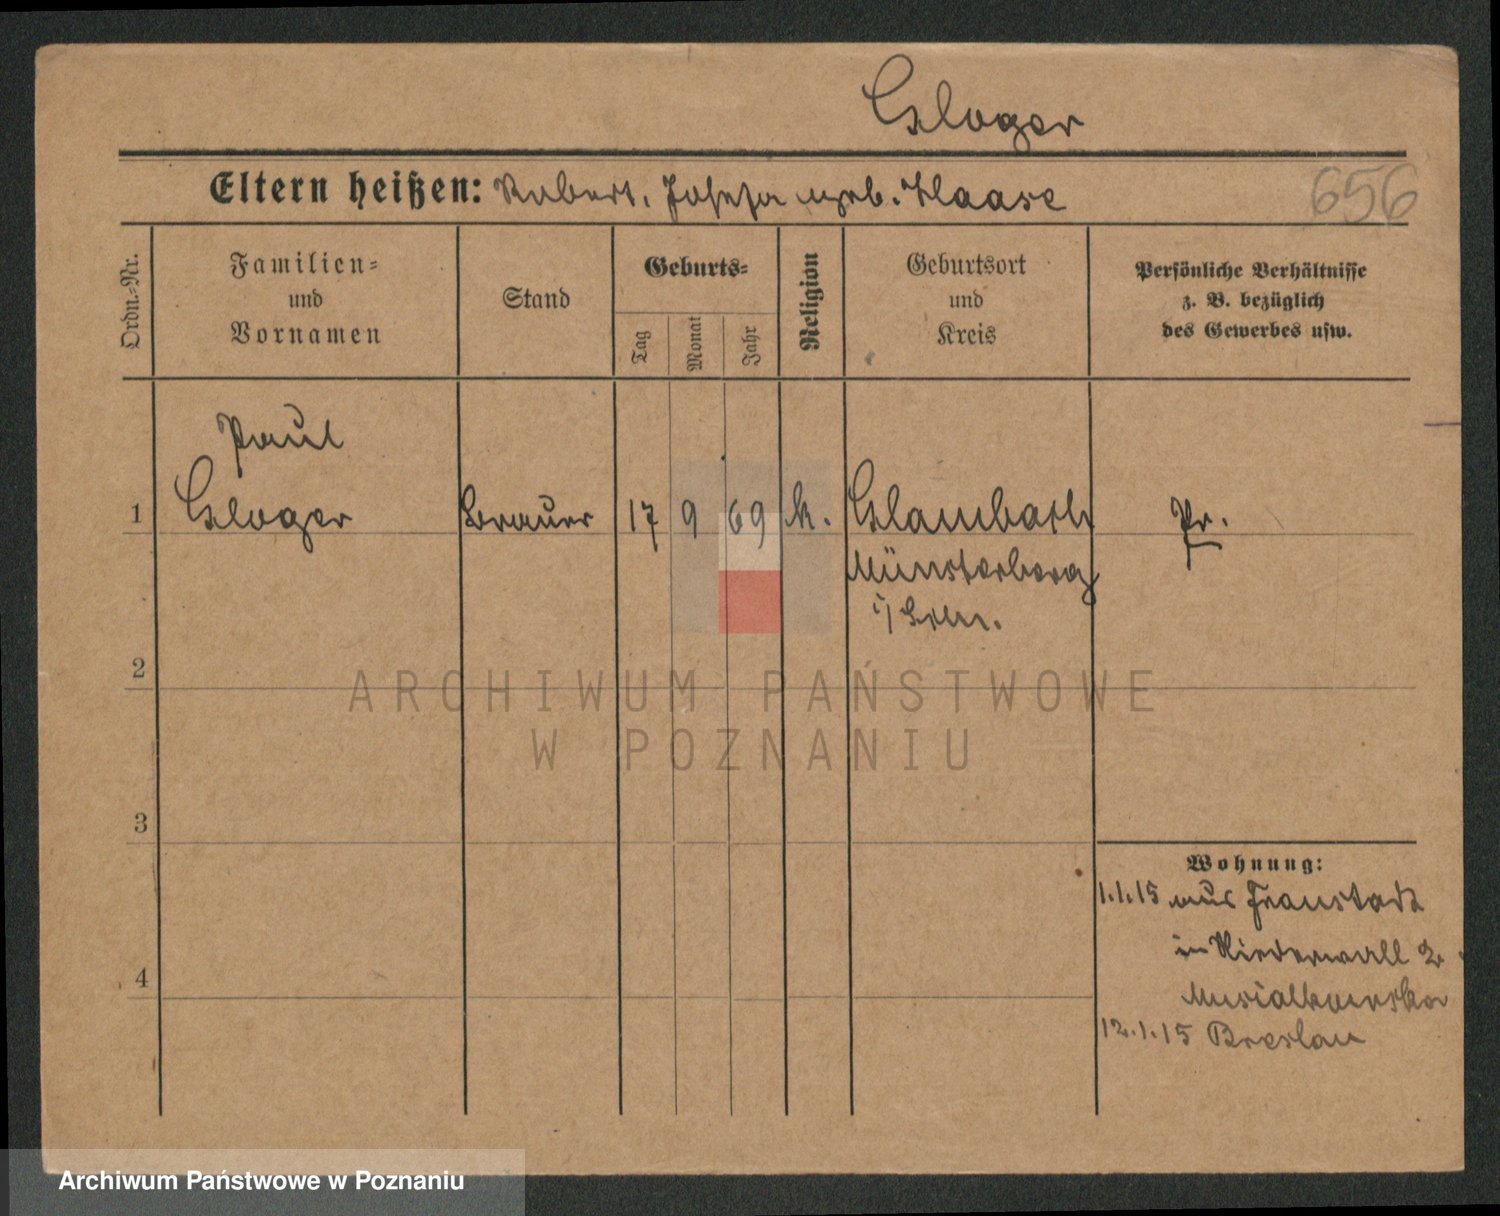 Gloger
Eltern heißen: Robert, Josefa geb. Haase
656
Ordn.-Nr.
Familien-
und
Vornamen
Stand
Geburts-
Tag
Monat
Jahr
Religion
Geburtsort
und
Kreis
Persönliche Verhältnisse
z. B. bezüglich
des Gewerbes usw.
Paul
1 Gloger Brauer 17 9 69 k. Glambach Pr.
Münsterberg
i/Schl.
2
ARCHIWUM PAŃSTWOWE
W POZNANIU
3
Wohnung:
1.1.15 aus Fraustadt
in Niederwall 2
4
Musialkowska
12.1.15 Breslau
Archiwum Państwowe w Poznaniu